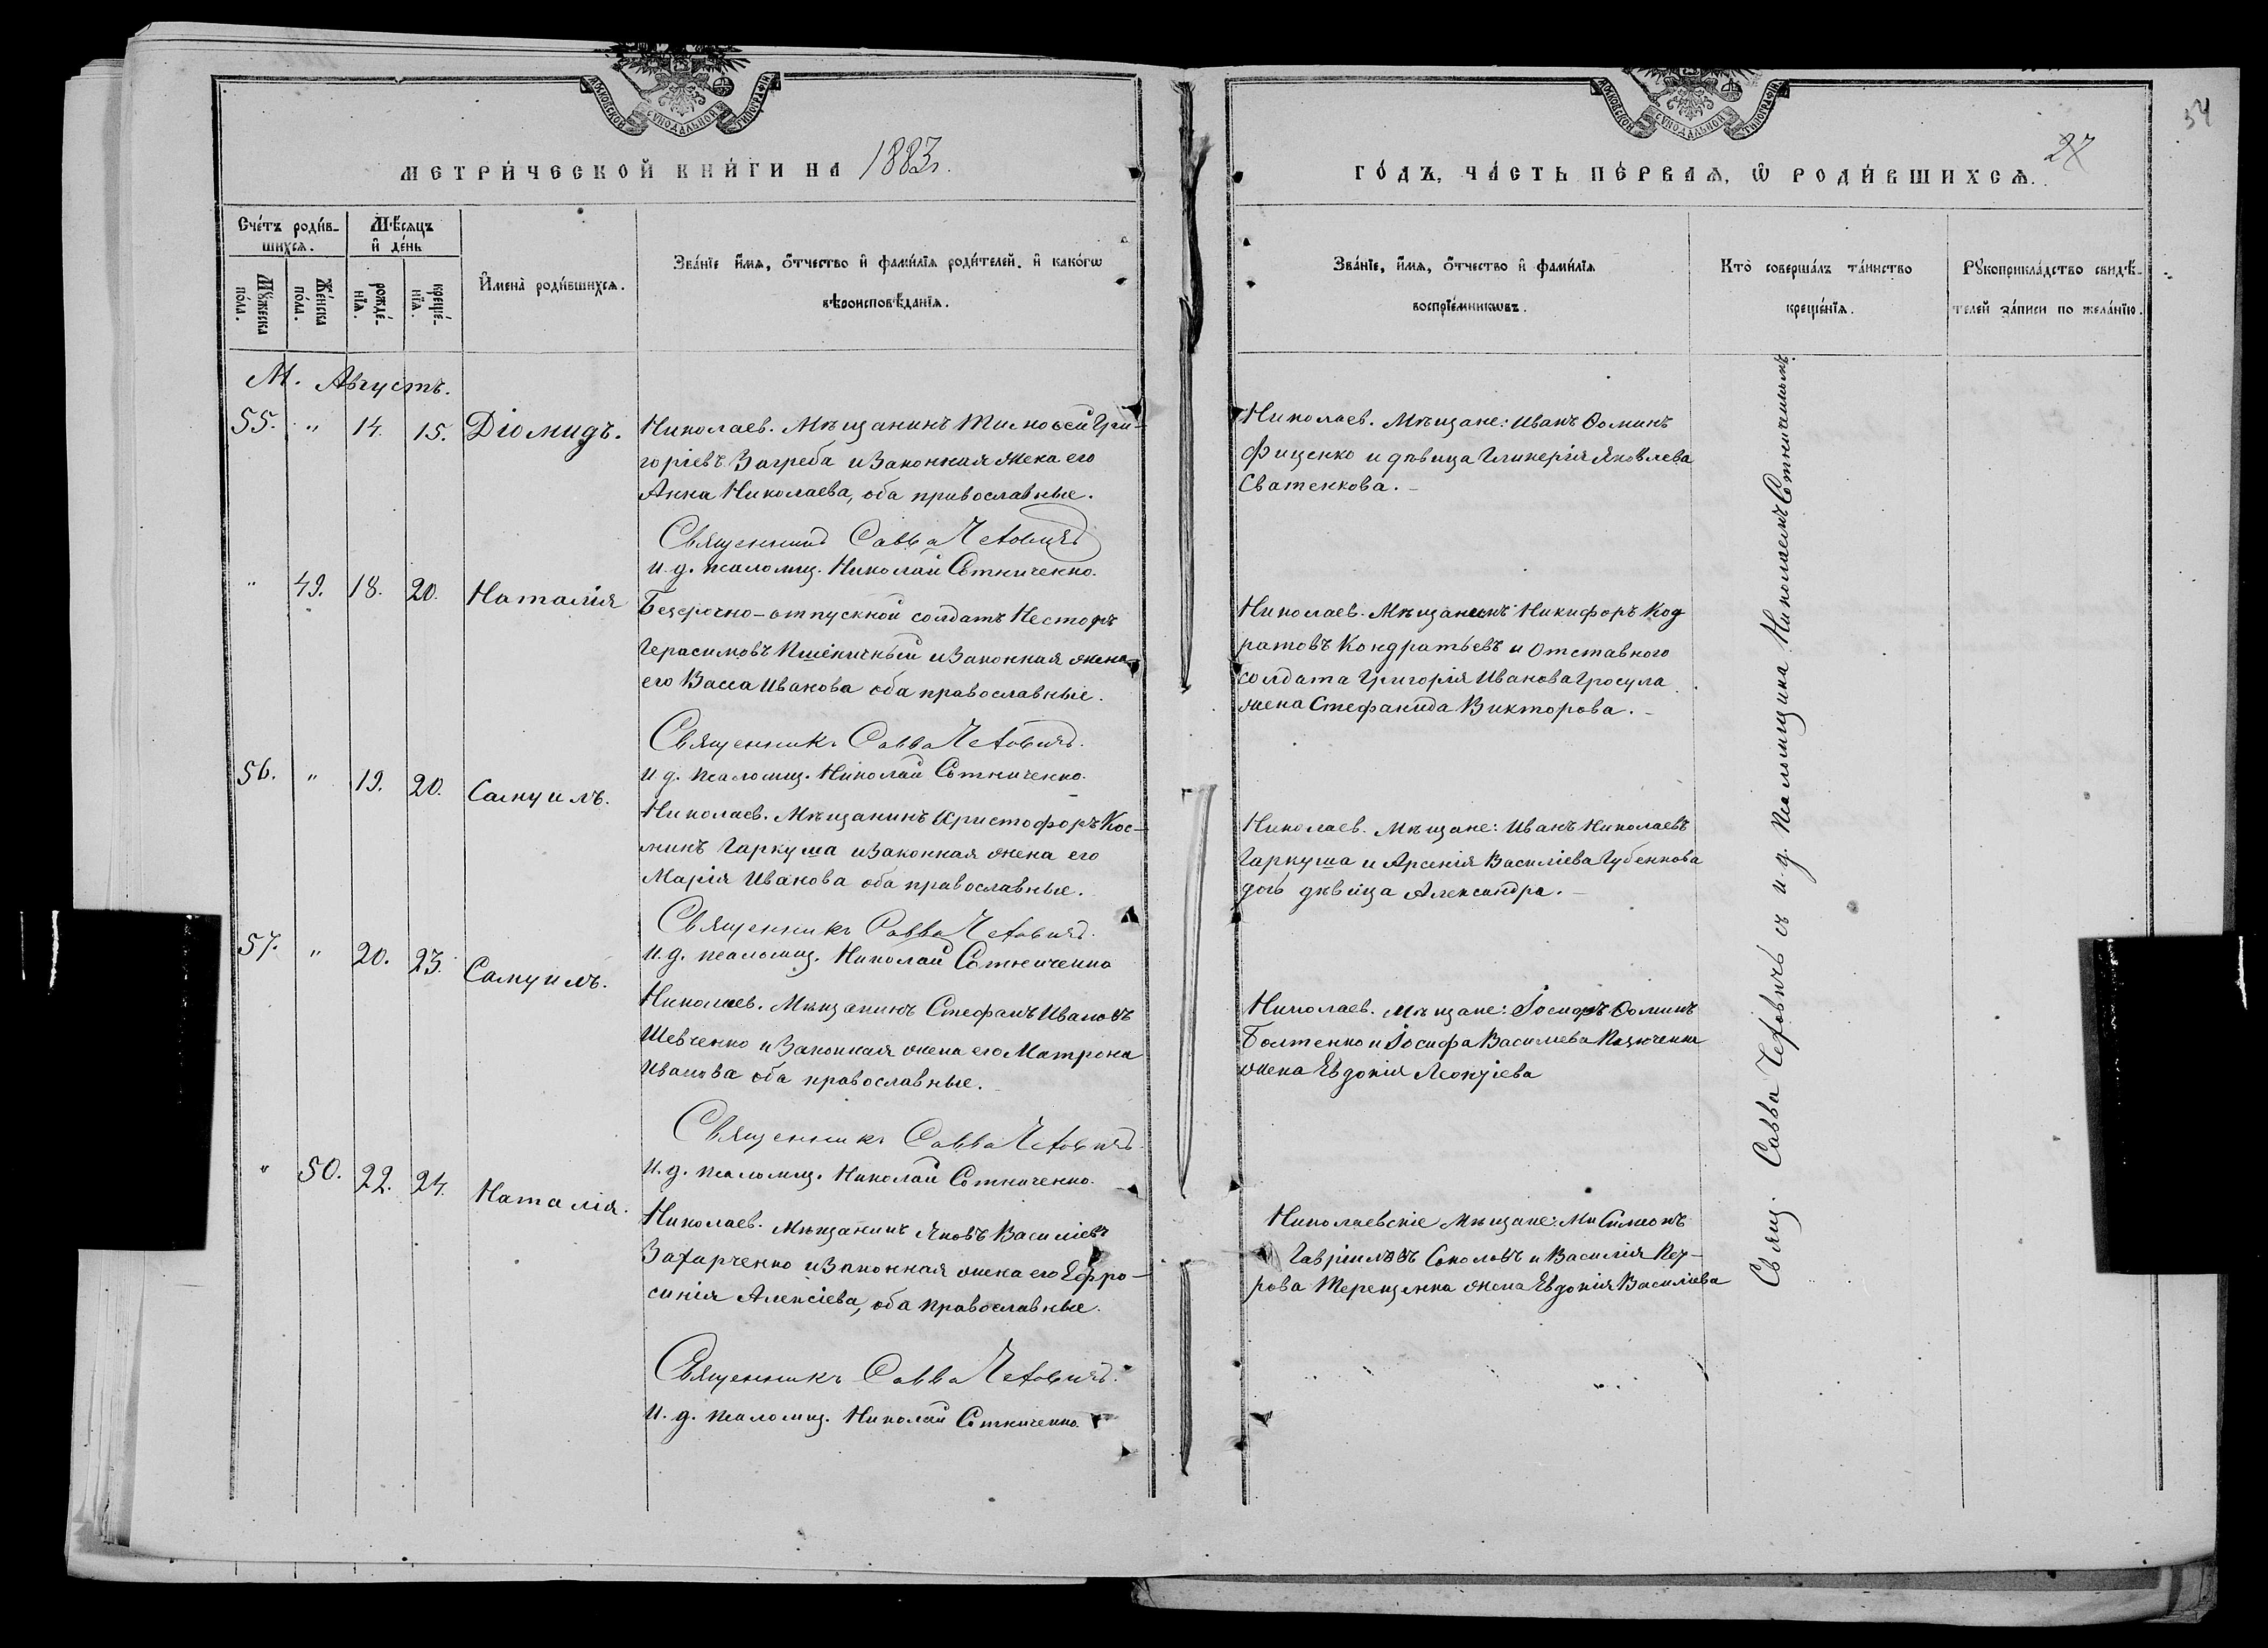 МОСКОВСКОЙ СѴНОДАЛЬНОЙ ТИПОГРАФІИ
МЕТРИ́ЧЕСКОЙ КНИ́ГИ НА 1883г.
Сче́тъ роди́в-
шихся.
Мѣ́сяцъ
и҆ де́нь
Мꙋ́жеска
по́ла.
Же́нска
по́ла.
рожде́-
нїя.
креще́-
нїя.
И҆мена̀ роди́вшихся.
Зва́нїе и҆́мя, ѻ҆́тчество и҆ фами́лїя роди́телей, и҆ како́гѡ
вѣроисповѣ́данїя.
М. Августъ.
55. " 14. 15. Діомидъ. Николаев. Мѣщанинъ Тимоѳей Гри-
горіевъ Загреба и Законная жена его
Анна Николаева, оба православные.
Священникъ Савва Чеховичъ
и. д. псаломщ. Николай Сотниченко.
" 49. 18. 20. Наталія Безсрочно-отпускной солдатъ Несторъ
Герасимовъ Пшеничный и Законная жена
его Васса Иванова оба православные.
Священникъ Савва Чеховичъ.
и. д. псаломщ. Николай Сотниченко.
56. " 19. 20. Самуилъ. Николаев. Мѣщанинъ Христофоръ Кос-
минъ Гаркуша и Законная жена его
Марія Иванова оба православные.
Священникъ Савва Чеховичъ.
и. д. псаломщ. Николай Сотниченко
57. " 20. 23. Самуилъ. Николаев. Мѣщанинъ Стефанъ Ивановъ
Шевченко и Законная жена его Матрона
Иванова оба православные.
Священникъ Савва Чеховичъ.
и. д. псаломщ. Николай Сотниченко.
" 50. 22. 24. Наталія. Николаев. Мѣщанинъ Яковъ Василіевъ
Захарченко и Законная жена его Ефро-
синія Алексіева, оба православные.
Священникъ Савва Чеховичъ.
и. д. псаломщ. Николай Сотниченко.
54
27
МОСКОВСКОЙ СѴНОДАЛЬНОЙ ТИПОГРАФІИ
ГО́ДЪ, ЧА́СТЬ ПЕ́РВАЯ, Ѡ҆ РОДИ́ВШИХСЯ.
Зва́нїе, и҆́мя, ѻ҆́тчество и҆ фами́лїя
воспрїе́мникѡвъ.
Кто̀ соверша́лъ та́инство
креще́нїя.
Рꙋкоприкла́дство свидѣ́-
телей за́писи по жела́нїю.
Николаев. Мѣщане: Иванъ Ѳоминъ
Фищенко и дѣвица Гликерія Яковлева
Сватенкова.
Николаев. Мѣщанинъ Никифоръ Код
ратовъ Кондратьевъ и Отставного
солдата Григорія Иванова Гросула
жена Стефанида Викторова.
Николаев. Мѣщане: Иванъ Николаевъ
Гаркуша и Арсенія Василіева Губенкова
дочь дѣвица Александра.
Николаев. Мѣщане: Іосифъ Ѳоминъ
Болтенко и Іосифа Василиева
жена Евдокія Леонтіева
Николаевскіе Мѣщане: Симеонъ
Гавріиловъ Соколовъ и Василія Пет-
рова Терещенка жена Евдокія Василіева
Свящ. Савва Чеховичъ съ и. д. Псаломщика Николаемъ Сотниченкомъ.